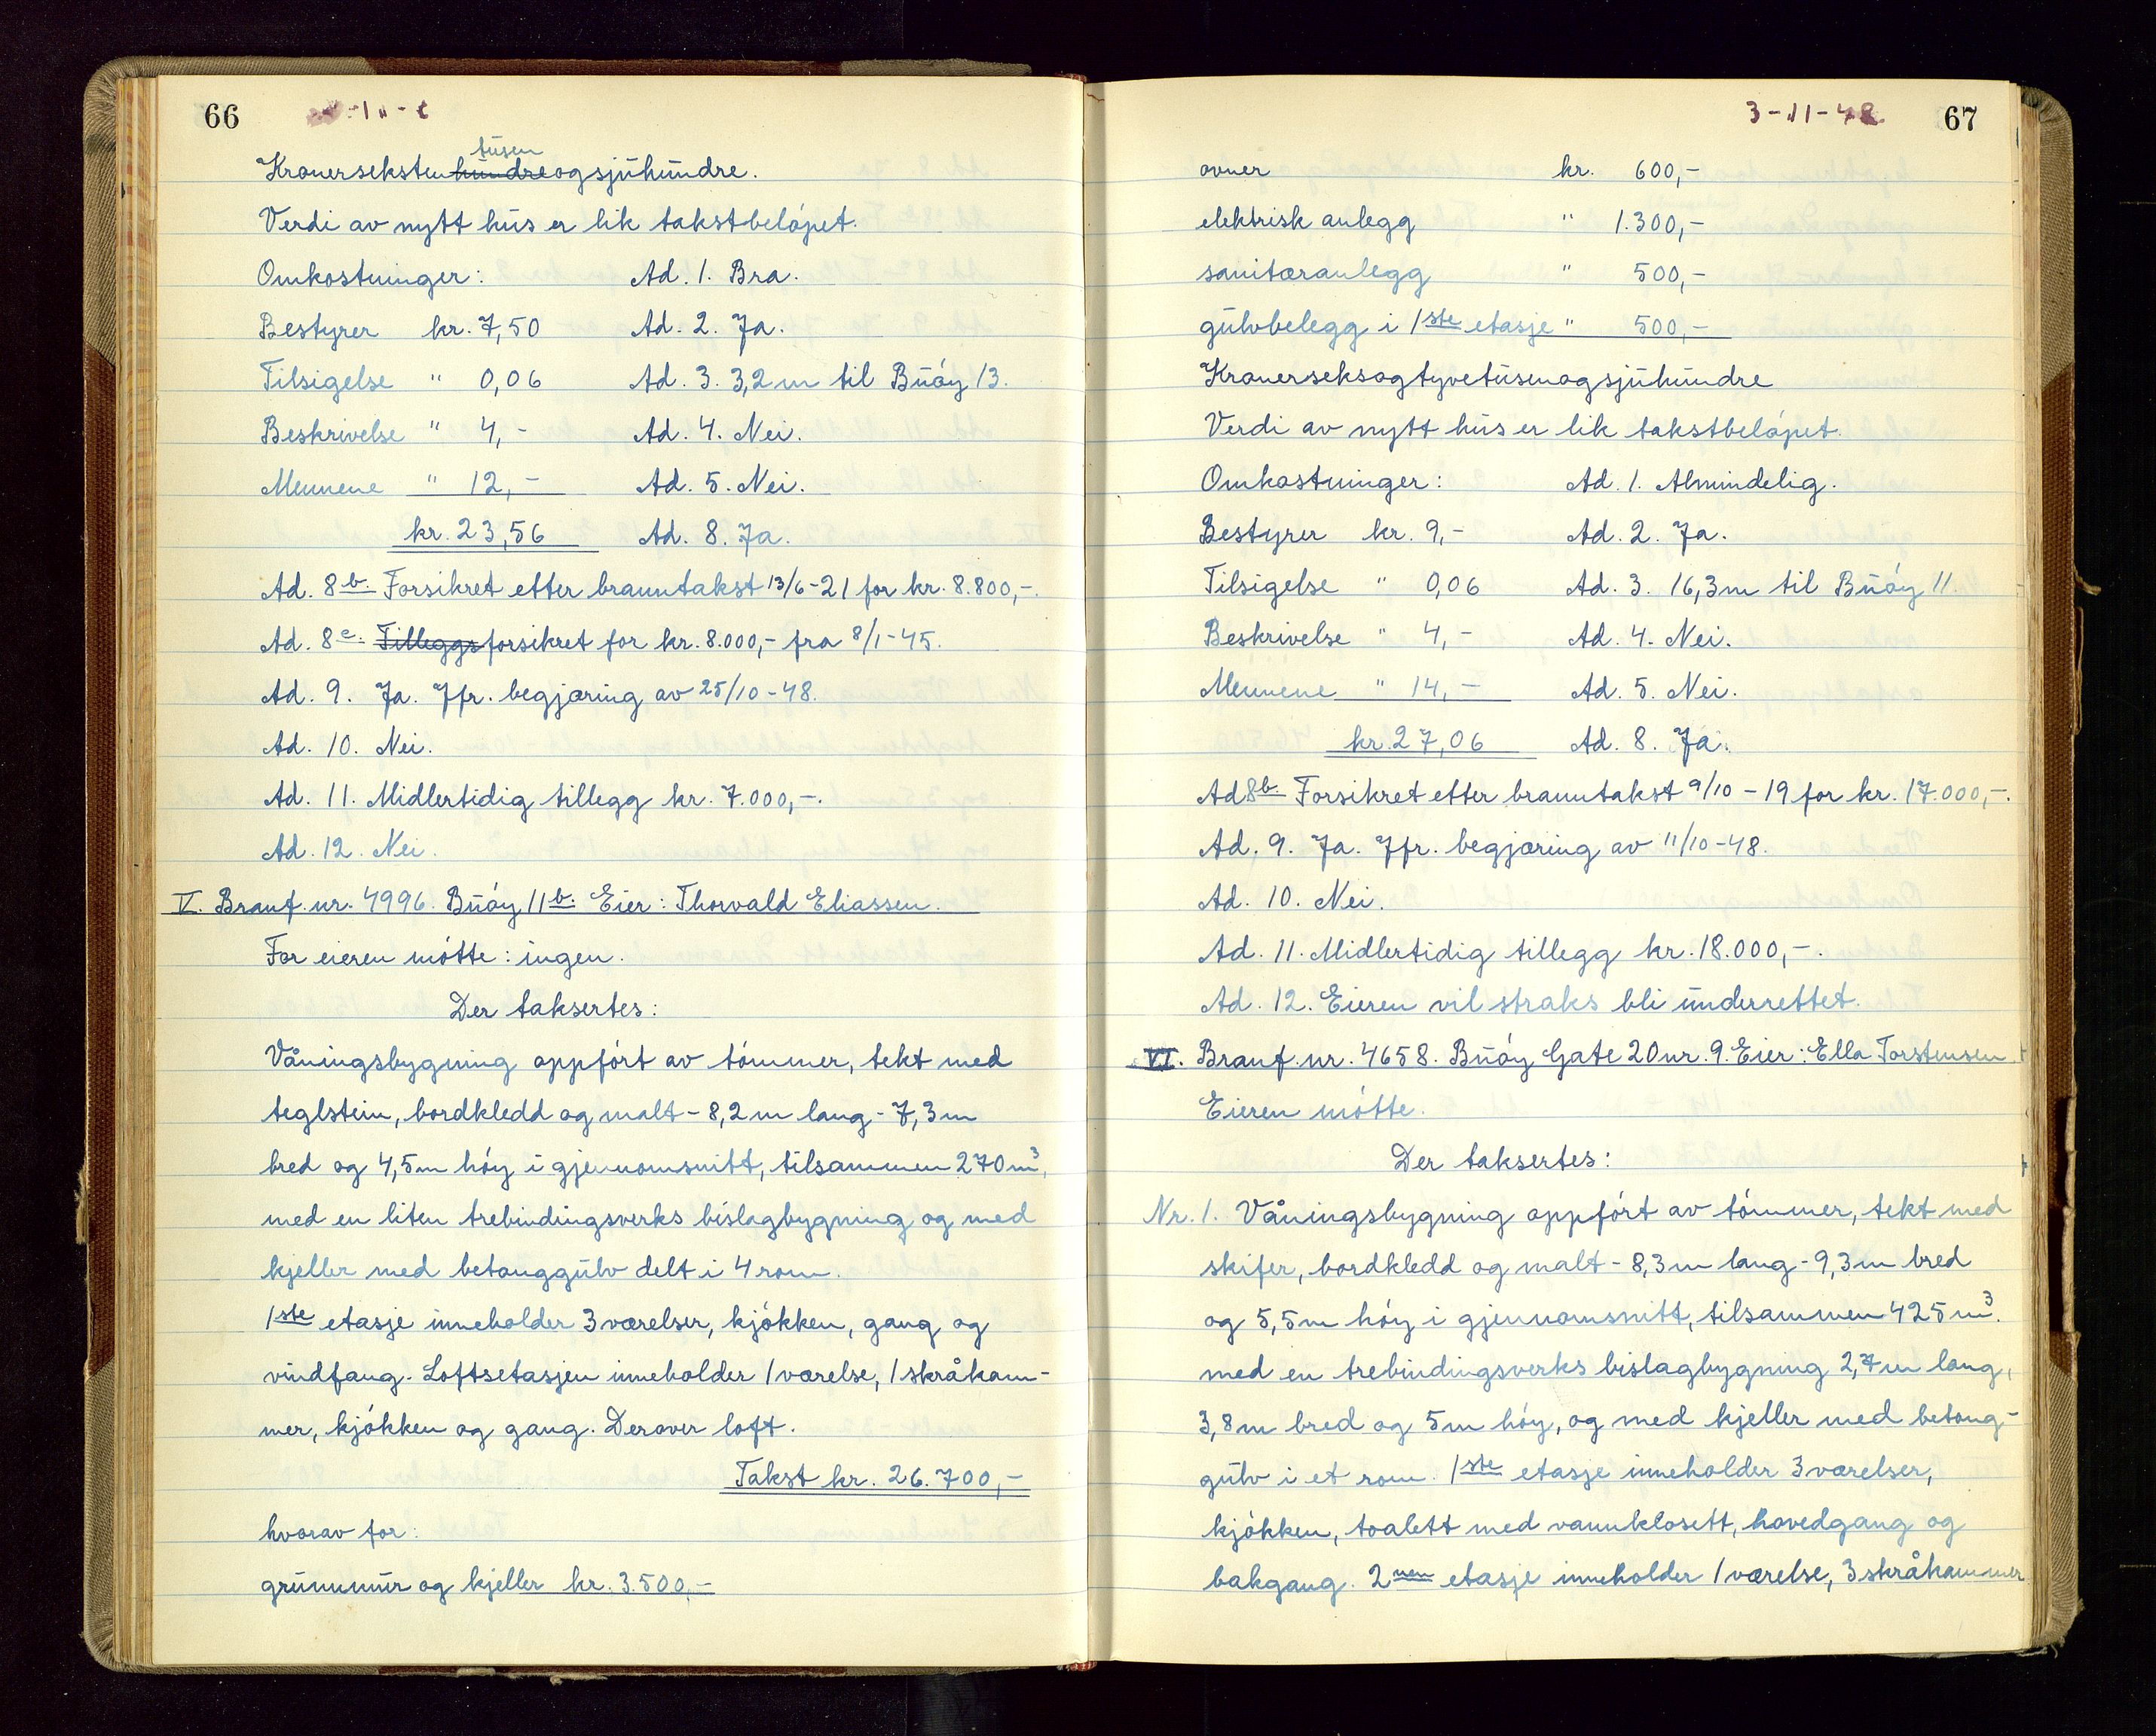 66
tusen
Kronersekstenhundreogsjuhundre.
Verdi av nytt hus er lik takstbeløpet.
Omkostninger: Ad. 1. Bra.
Bestyrer kr. 7,50 Ad. 2. Ja.
Tilsigelse " 0,06 Ad. 3. 3,2 m til Buøy 13.
Beskrivelse " 4,- Ad. 4. Nei.
Mennene " 12,- Ad. 5. Nei.
kr. 23,56 Ad. 8. Ja.
Ad. 8b. Forsikret etter branntakst 13/6-21 for kr. 8.800,-.
Ad. 8c. Tilleggsforsikret for kr. 8.000,- fra 8/1-45.
Ad. 9. Ja. Jfr. begjæring av 25/10-48.
Ad. 10. Nei.
Ad. 11. Midlertidig tillegg kr. 7.000,-.
Ad. 12. Nei.
V. Branf. nr. 4996. Buøy 11b. Eier: Thorvald Eliassen.
For eieren møtte: ingen.
Der taksertes:
Våningsbygning oppført av tømmer, tekt med
teglstein, bordkledd og malt - 8,2 m lang - 7,3 m
bred og 4,5 m høy i gjennomsnitt, tilsammen 270 m³,
med en liten trebindingsverks bislagbygning og med
kjeller med betonggulv delt i 4 rom.
1ste etasje inneholder 3 værelser, kjøkken, gang og
vindfang. Loftsetasjen inneholder 1 værelse, 1 skråkam-
mer, kjøkken og gang. Derover loft.
Takst kr. 26.700,-
hvorav for:
grunnmur og kjeller kr. 3.500,-
3-11-48 67
ovner kr. 600,-
elektrisk anlegg " 1.300,-
sanitæranlegg " 500,-
gulvbelegg i 1ste etasje " 500,-
Kronerseksogtyvetusenogsjuhundre
Verdi av nytt hus er lik takstbeløpet.
Omkostninger: Ad. 1. Almindelig.
Bestyrer kr. 9,- Ad. 2. Ja.
Tilsigelse " 0,06 Ad. 3. 16,3 m til Buøy 11.
Beskrivelse " 4,- Ad. 4. Nei.
Mennene " 14,- Ad. 5. Nei.
kr. 27,06 Ad. 8. Ja.
Ad 8b. Forsikret etter branntakst 9/10-19 for kr. 17.000,-.
Ad. 9. Ja. Jfr. begjæring av 11/10-48.
Ad. 10. Nei.
Ad. 11. Midlertidig tillegg kr. 18.000,-.
Ad. 12. Eieren vil straks bli underrettet.
VI. Branf. nr. 4658. Buøy Gate 20 nr. 9. Eier: Ella Torstensen
Eieren møtte.
Der taksertes:
Nr. 1. Våningsbygning oppført av tømmer, tekt med
skifer, bordkledd og malt - 8,3 m lang - 9,3 m bred
og 5,5 m høy i gjennomsnitt, tilsammen 425 m³.
med en trebindingsverks bislagbygning 2,7 m lang,
3,8 m bred og 5 m høy, og med kjeller med betong-
gulv i et rom. 1ste etasje inneholder 3 værelser,
kjøkken, toalett med vannklosett, hovedgang og
bakgang. 2nen etasje inneholder 1 værelse, 3 skråkammer